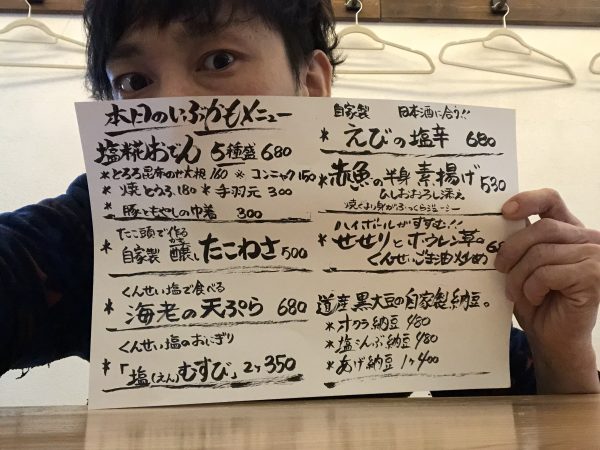 本日のいぶかもメニュー
塩糀おでん 5種盛 680
*とろろ昆布のせ大根 160 * コンニャク 150
* 焼とうふ 180 * 手羽元 300
* 豚ともやしの巾着 300
たこ頭で作る
* 自家製 醸し たこわさ 500
くんせい塩で食べる
* 海老の天ぷら 680
くんせい塩のおにぎり
* 「塩(えん)むすび」2ヶ 350
自家製 日本酒に合う!!
* えびの塩辛 680
* 赤魚の半身 素揚げ 530
ひしおおろし添え
ハイボールがすすむ!!
* せせりとホウレン草の
くんせいごま油炒め
道産黒大豆の自家製納豆。
* オクラ納豆 480
* 塩こんぶ納豆 480
* あげ納豆 1ヶ 400